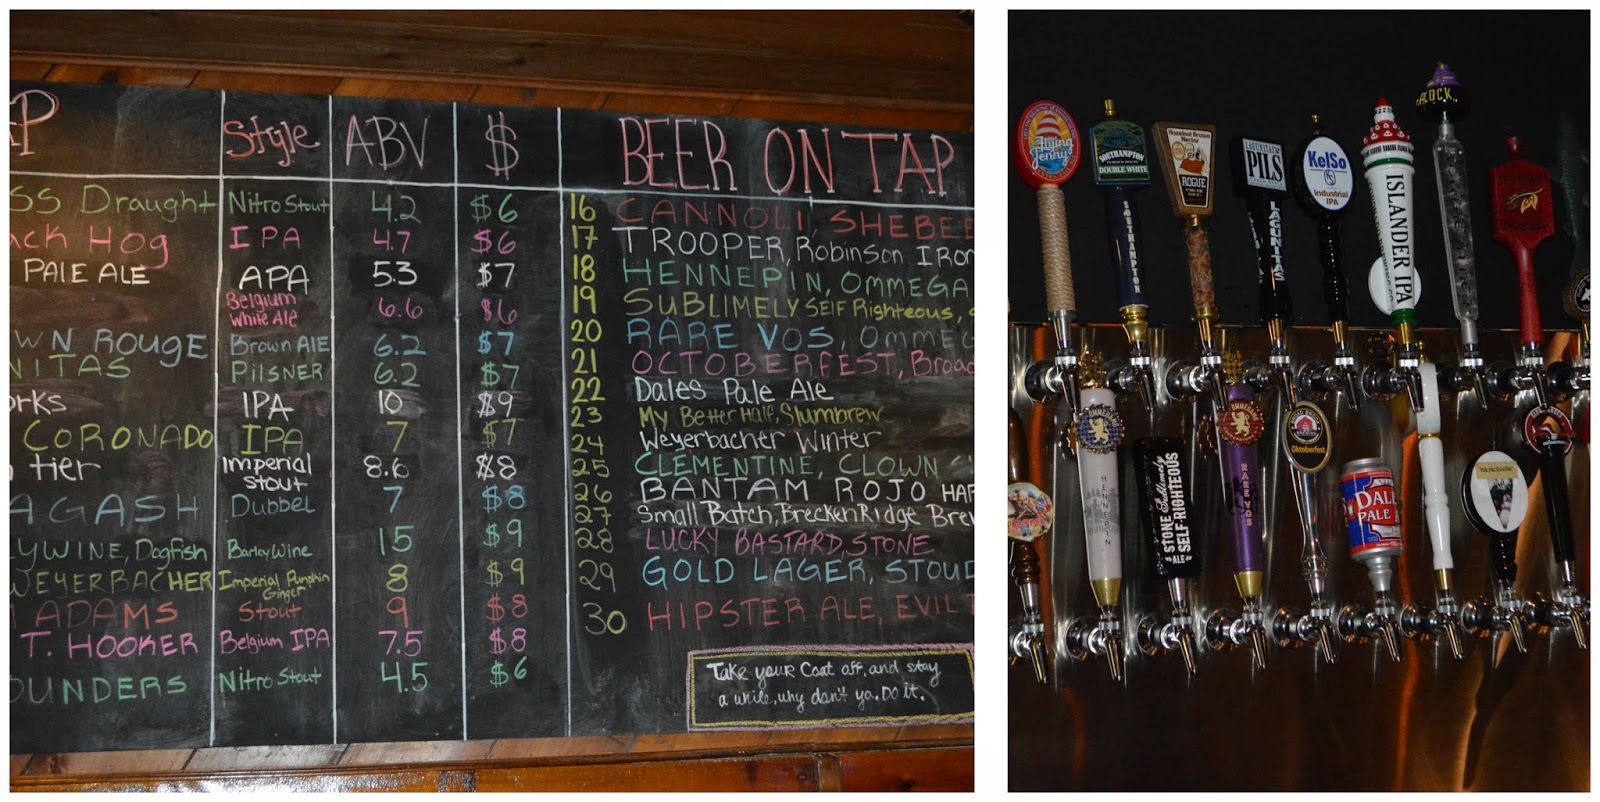 AP Style ABV $ BEER ON TAP
SS Draught Nitro Stout 4.2 $6
ack Hog IPA 4.7 $6
PALE ALE APA 5.3 $7
Belgium White Ale 6.6 $6
WN ROUGE Brown ALE 6.2 $7
NITAS PILSNER 6.2 $7
orks IPA 10 $9
CORONADO IPA 7 $7
tier Imperial stout 8.6 $8
AGASH Dubbel 7 $8
LYWINE, Dogfish Barley Wine 15 $9
WEYERBACHER Imperial Pumpkin Ginger 8 $9
ADAMS Stout 9 $8
T. HOOKER Belgium IPA 7.5 $8
OUNDERS Nitro Stout 4.5 $6
16 CANNOLI, SHEBEE
17 TROOPER, Robinson Iron
18 HENNEPIN, OMMEGA
19 SUBLIMELY SELF Righteous,
20 RARE VOS, OMMEG
21 OCTOBERFEST, Broad
22 Dales Pale Ale
23 My Better Half, Slumbrew
24 Weyerbacher Winter
25 CLEMENTINE, CLOWN
26 BANTAM ROJO HAR
27 Small Batch, BreckenRidge Brew
28 LUCKY BASTARD, STONE
29 GOLD LAGER, STOUD
30 HIPSTER ALE, EVIL T
Take your Coat off, and stay
a while, why don't ya. Do it.
Flying
Jenny
SOUTHAMPTON
DOUBLE WHITE
SOUTHAMPTON
Hazelnut Brown
Nectar
ROGUE
LAGUNITAS
PILS
LAGUNITAS
KelSo
Industrial
IPA
ISLANDER IPA
OCK
OMMEGANG
HENNEPIN
STONE Sublimely
SELF-RIGHTEOUS
ALE
OMMEGANG
RARE VOS
Oktoberfest
DALE
PALE